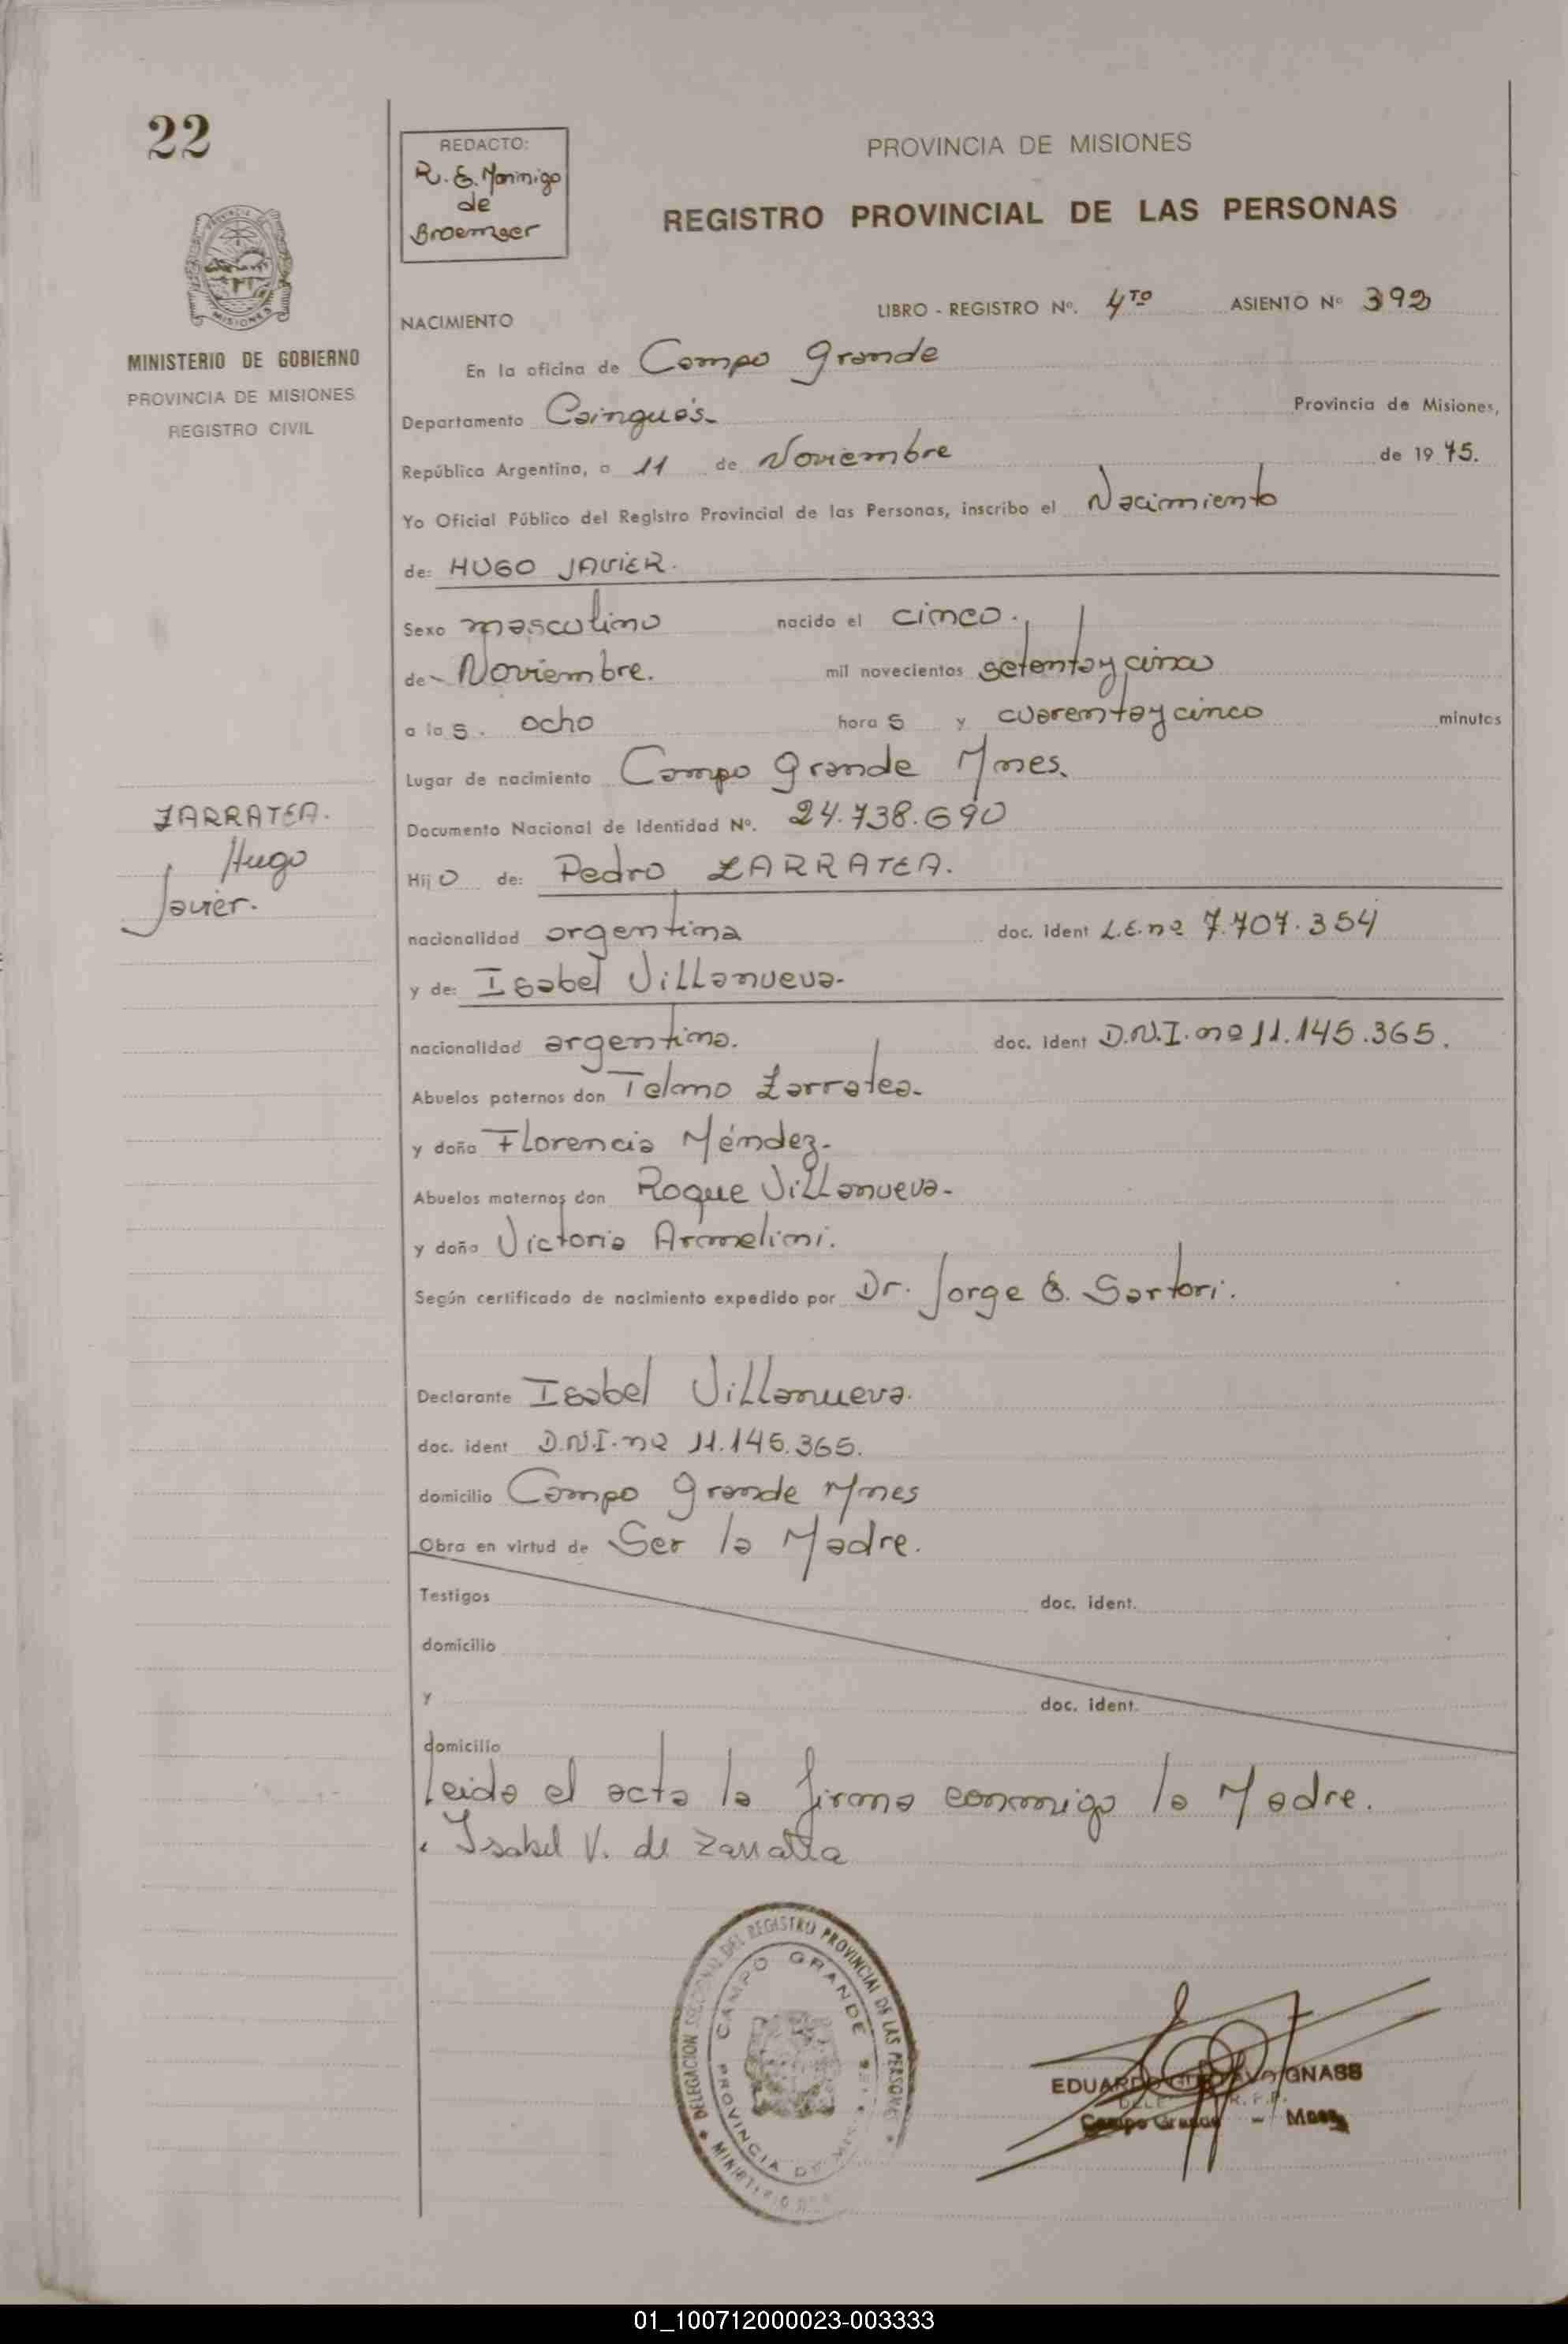 22
REDACTO:
R. E. Morinigo
de
PROVINCIA DE MISIONES
REGISTRO PROVINCIAL DE LAS PERSONAS
MISIONES
MINISTERIO DE GOBIERNO
PROVINCIA DE MISIONES
REGISTRO CIVIL
NACIMIENTO LIBRO - REGISTRO Nº. 4TO ASIENTO Nº 392
En la oficina de Campo Grande
Departamento Cainguás. Provincia de Misiones,
República Argentina, a 11 de Noviembre de 19 75.
Yo Oficial Público del Registro Provincial de las Personas, inscribo el Nacimiento
de: HUGO JAVIER.
Sexo masculino nacido el cinco.
de Noviembre. mil novecientos setenta y cinco
a las. ocho horas y cuarenta y cinco minutos
Lugar de nacimiento Campo Grande Mnes.
Documento Nacional de Identidad Nº. 24.738.690
ZARRATEA.
Hugo
Javier.
Hijo de: Pedro ZARRATEA.
nacionalidad argentina doc. ident L.E. nº 7.707.354
y de: Isabel Villanueva.
nacionalidad argentina. doc. ident D.N.I. nº 11.145.365.
Abuelos paternos don Telmo Zarratea.
y doña Florencia Méndez.
Abuelos maternos don Roque Villanueva.
y doña Victoria Armelini.
Según certificado de nacimiento expedido por Dr. Jorge E. Sartori.
Declarante Isabel Villanueva.
doc. ident D.N.I. nº 11.145.365.
domicilio Campo Grande Mnes
Obra en virtud de Ser la Madre.
Testigos doc. ident.
domicilio
y doc. ident.
domicilio
Leida el acta la firma conmigo la Madre.
Isabel V. de Zarratea
DELEGACION SECCIONAL DEL REGISTRO PROVINCIAL DE LAS PERSONAS
CAMPO GRANDE
PROVINCIA DE MIS
MINISTERIO DE
EDUARDO GNASS
Campo Grande - Mnes
01_100712000023-003333